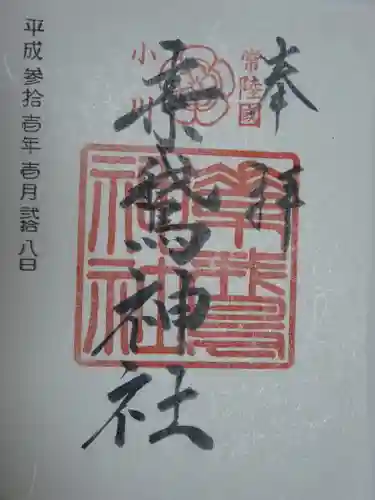 奉拝
常陸國
素鵞神社
小川
素鵞
神社
平成参拾壱年壱月弐拾八日